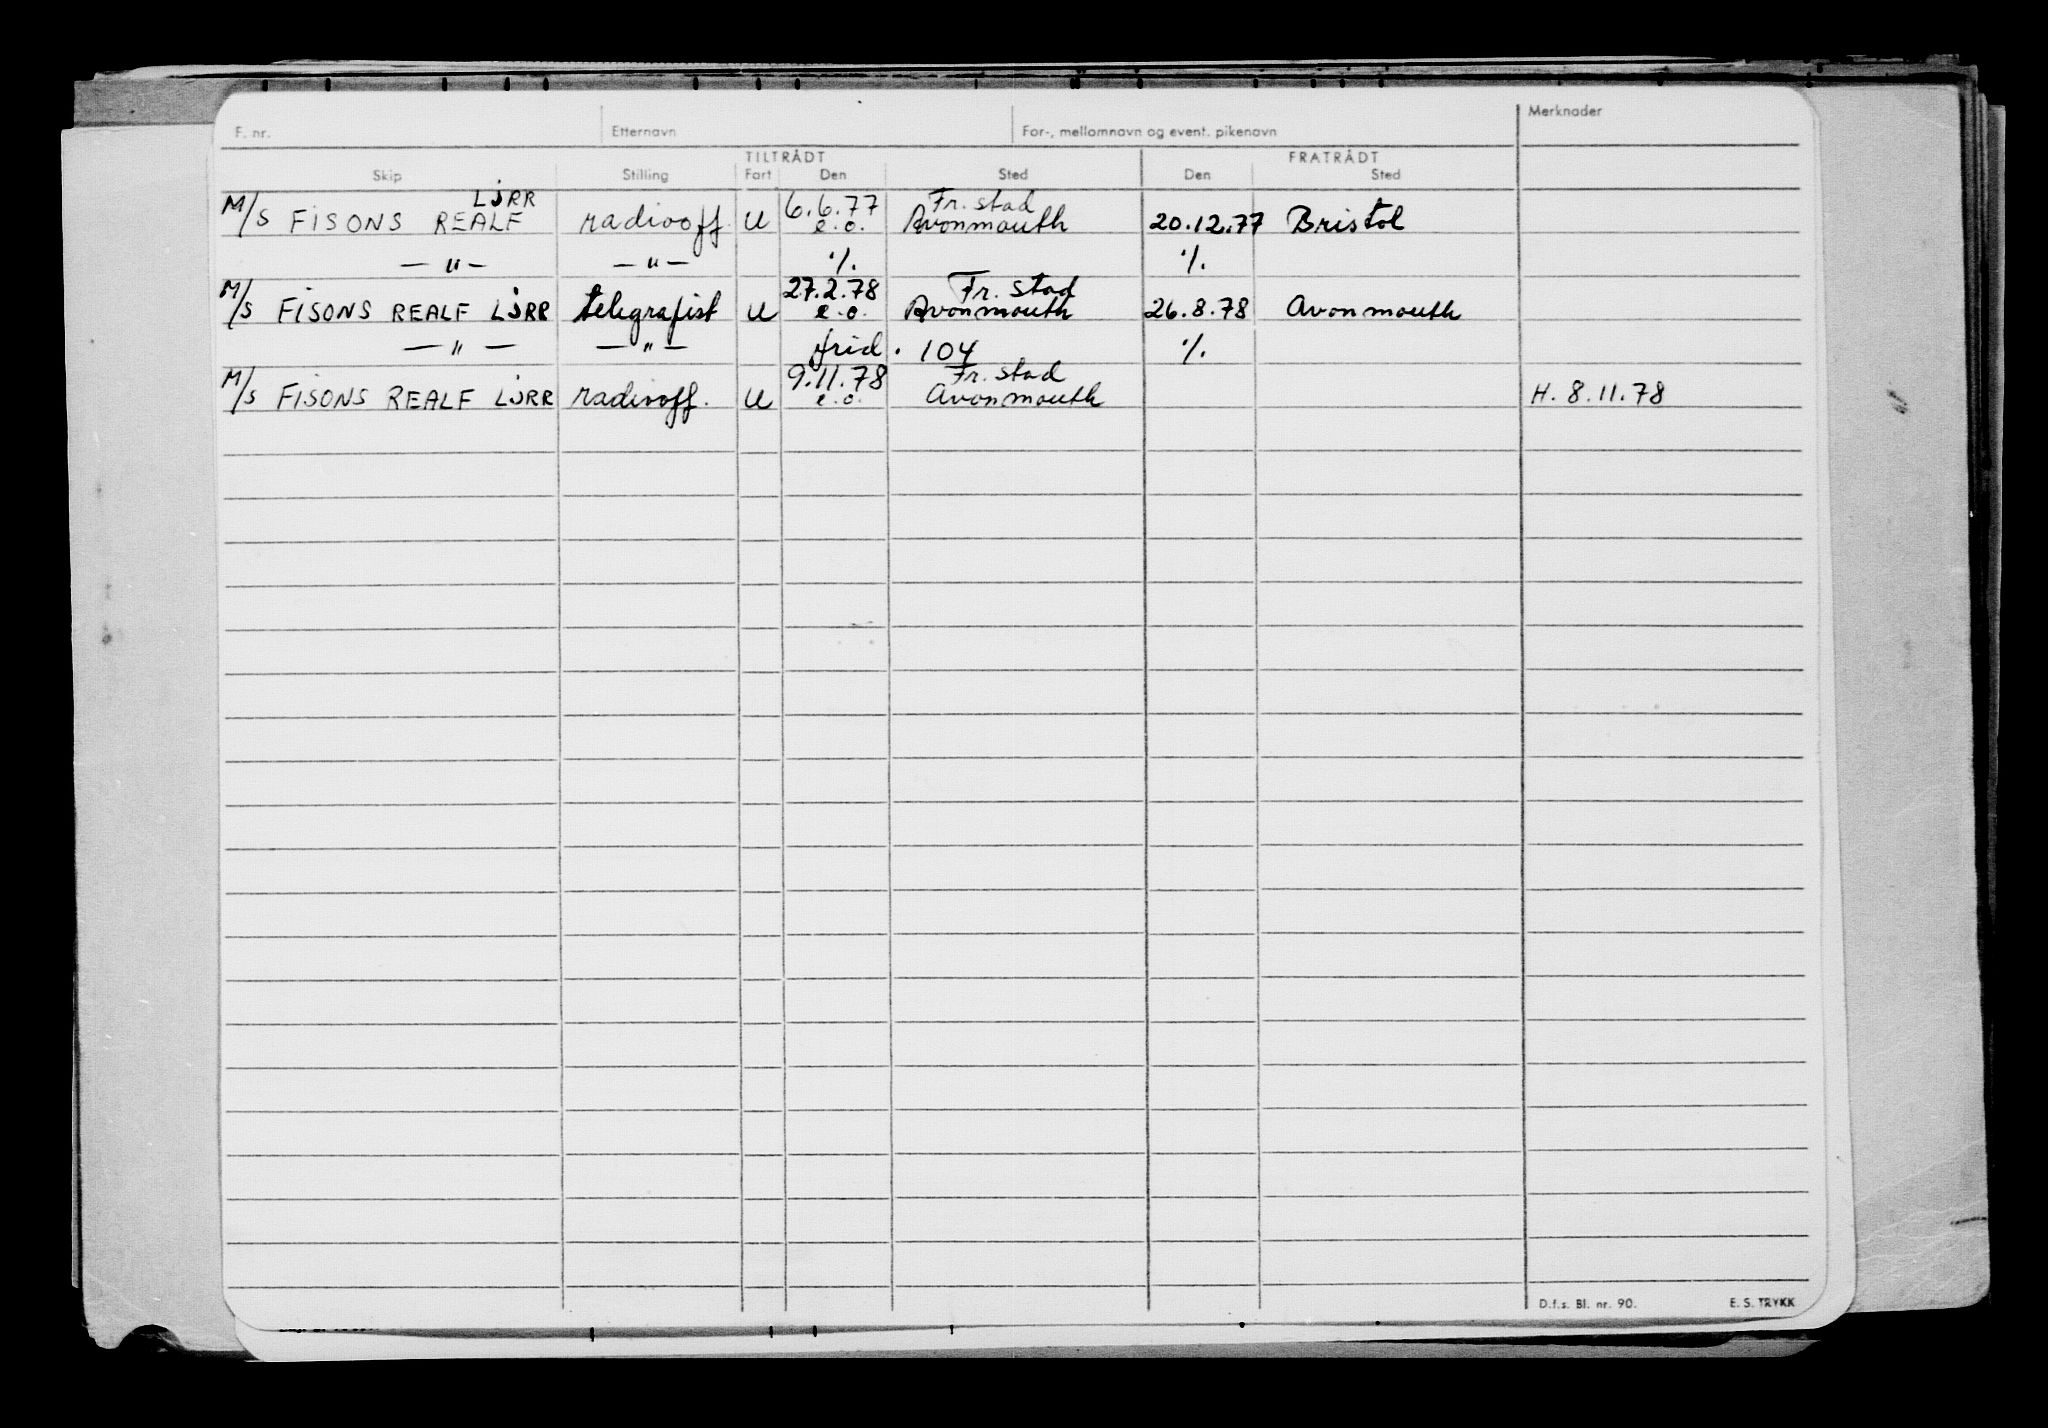 F. nr. Etternavn For-, mellomnavn og event. pikenavn Merknader
TILTRÅDT FRATRÅDT
Skip Stilling Fart Den Sted Den Sted
LJRR 6.6.77 Fr. stad
M/S FISONS REALF radiooff. U e.o. Avonmouth 20.12.77 Bristol
— " — — " — ·/. ·/.
27.2.78 Fr. stad
M/S FISONS REALF LJRR telegrafist U e.o. Avonmouth 26.8.78 Avonmouth
— " — — " — frid. 104 ·/.
9.11.78 Fr. stad
M/S FISONS REALF LJRR radiooff. U e.o. Avonmouth H. 8.11.78
D.f.s. Bl. nr. 90. E. S. TRYKK